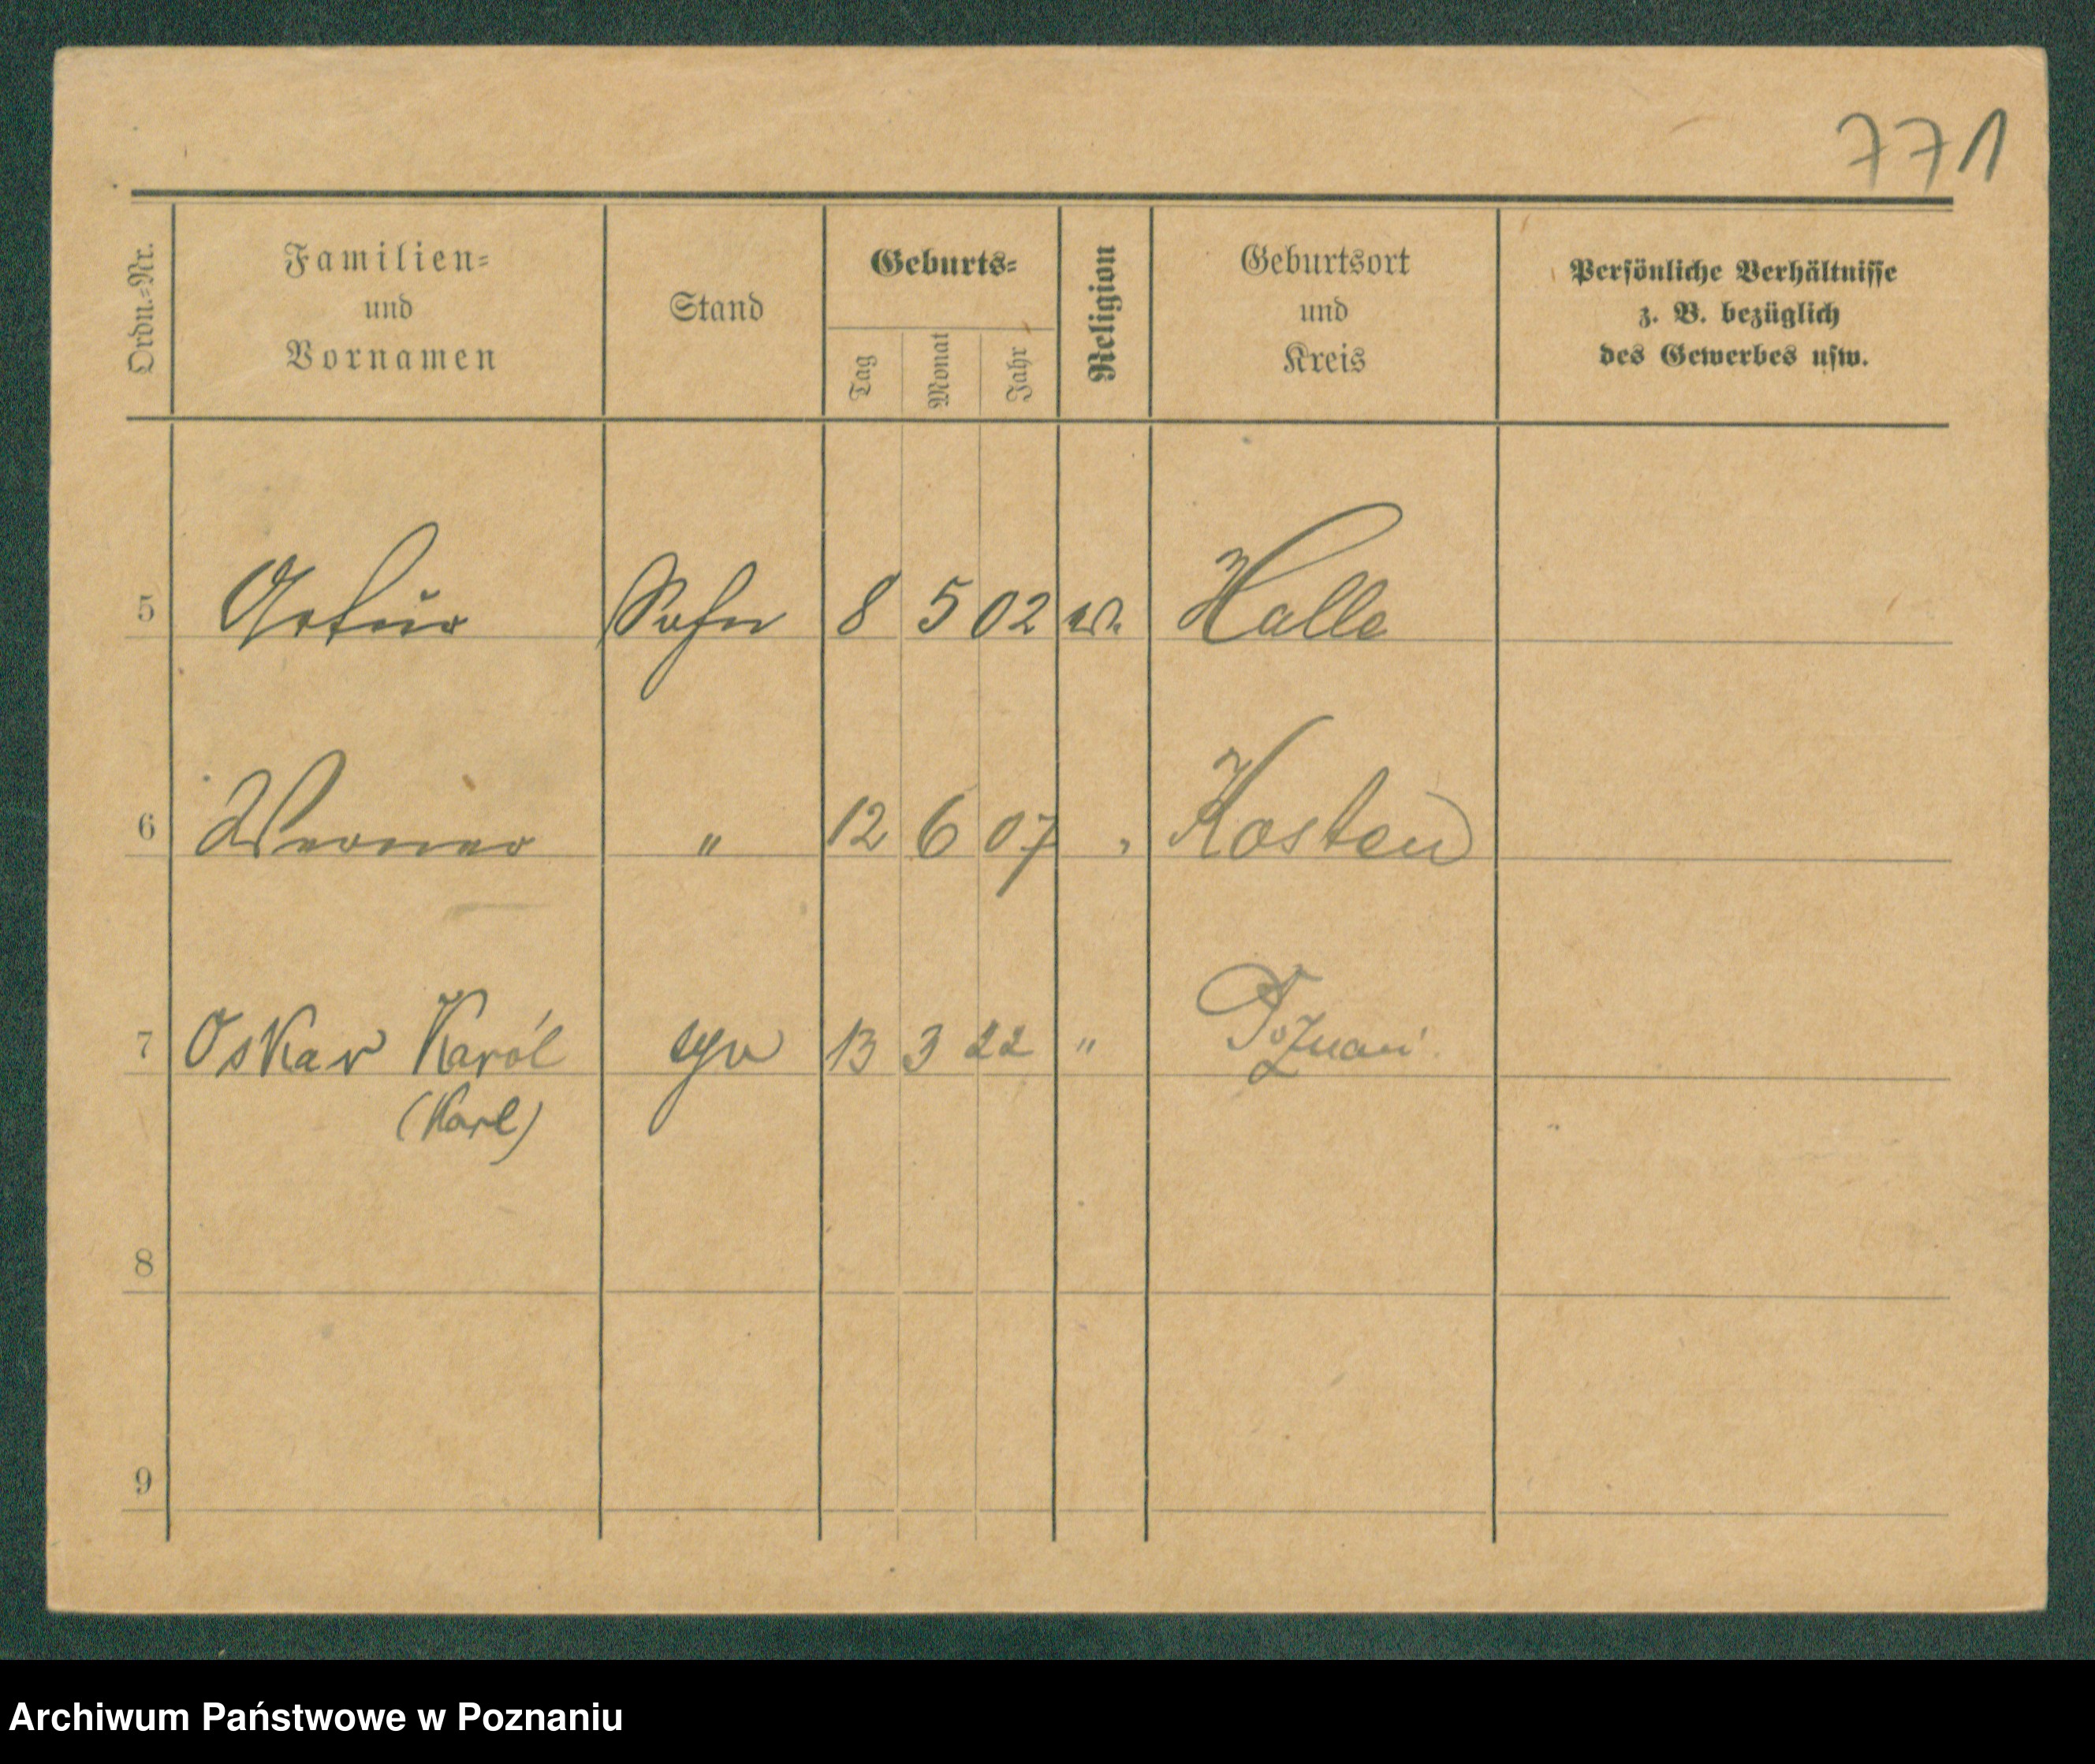 771
Ordn.-Nr.
Familien-
und
Vornamen
Stand
Geburts-
Tag
Monat
Jahr
Religion
Geburtsort
und
Kreis
Persönliche Verhältnisse
z. B. bezüglich
des Gewerbes usw.
5 Artur Sohn 8 5 02 Halle
6 Werner " 12 6 07 " Kosten
7 Oskar Karól syn 13 3 22 " Poznań
(Karl)
8
9
Archiwum Państwowe w Poznaniu